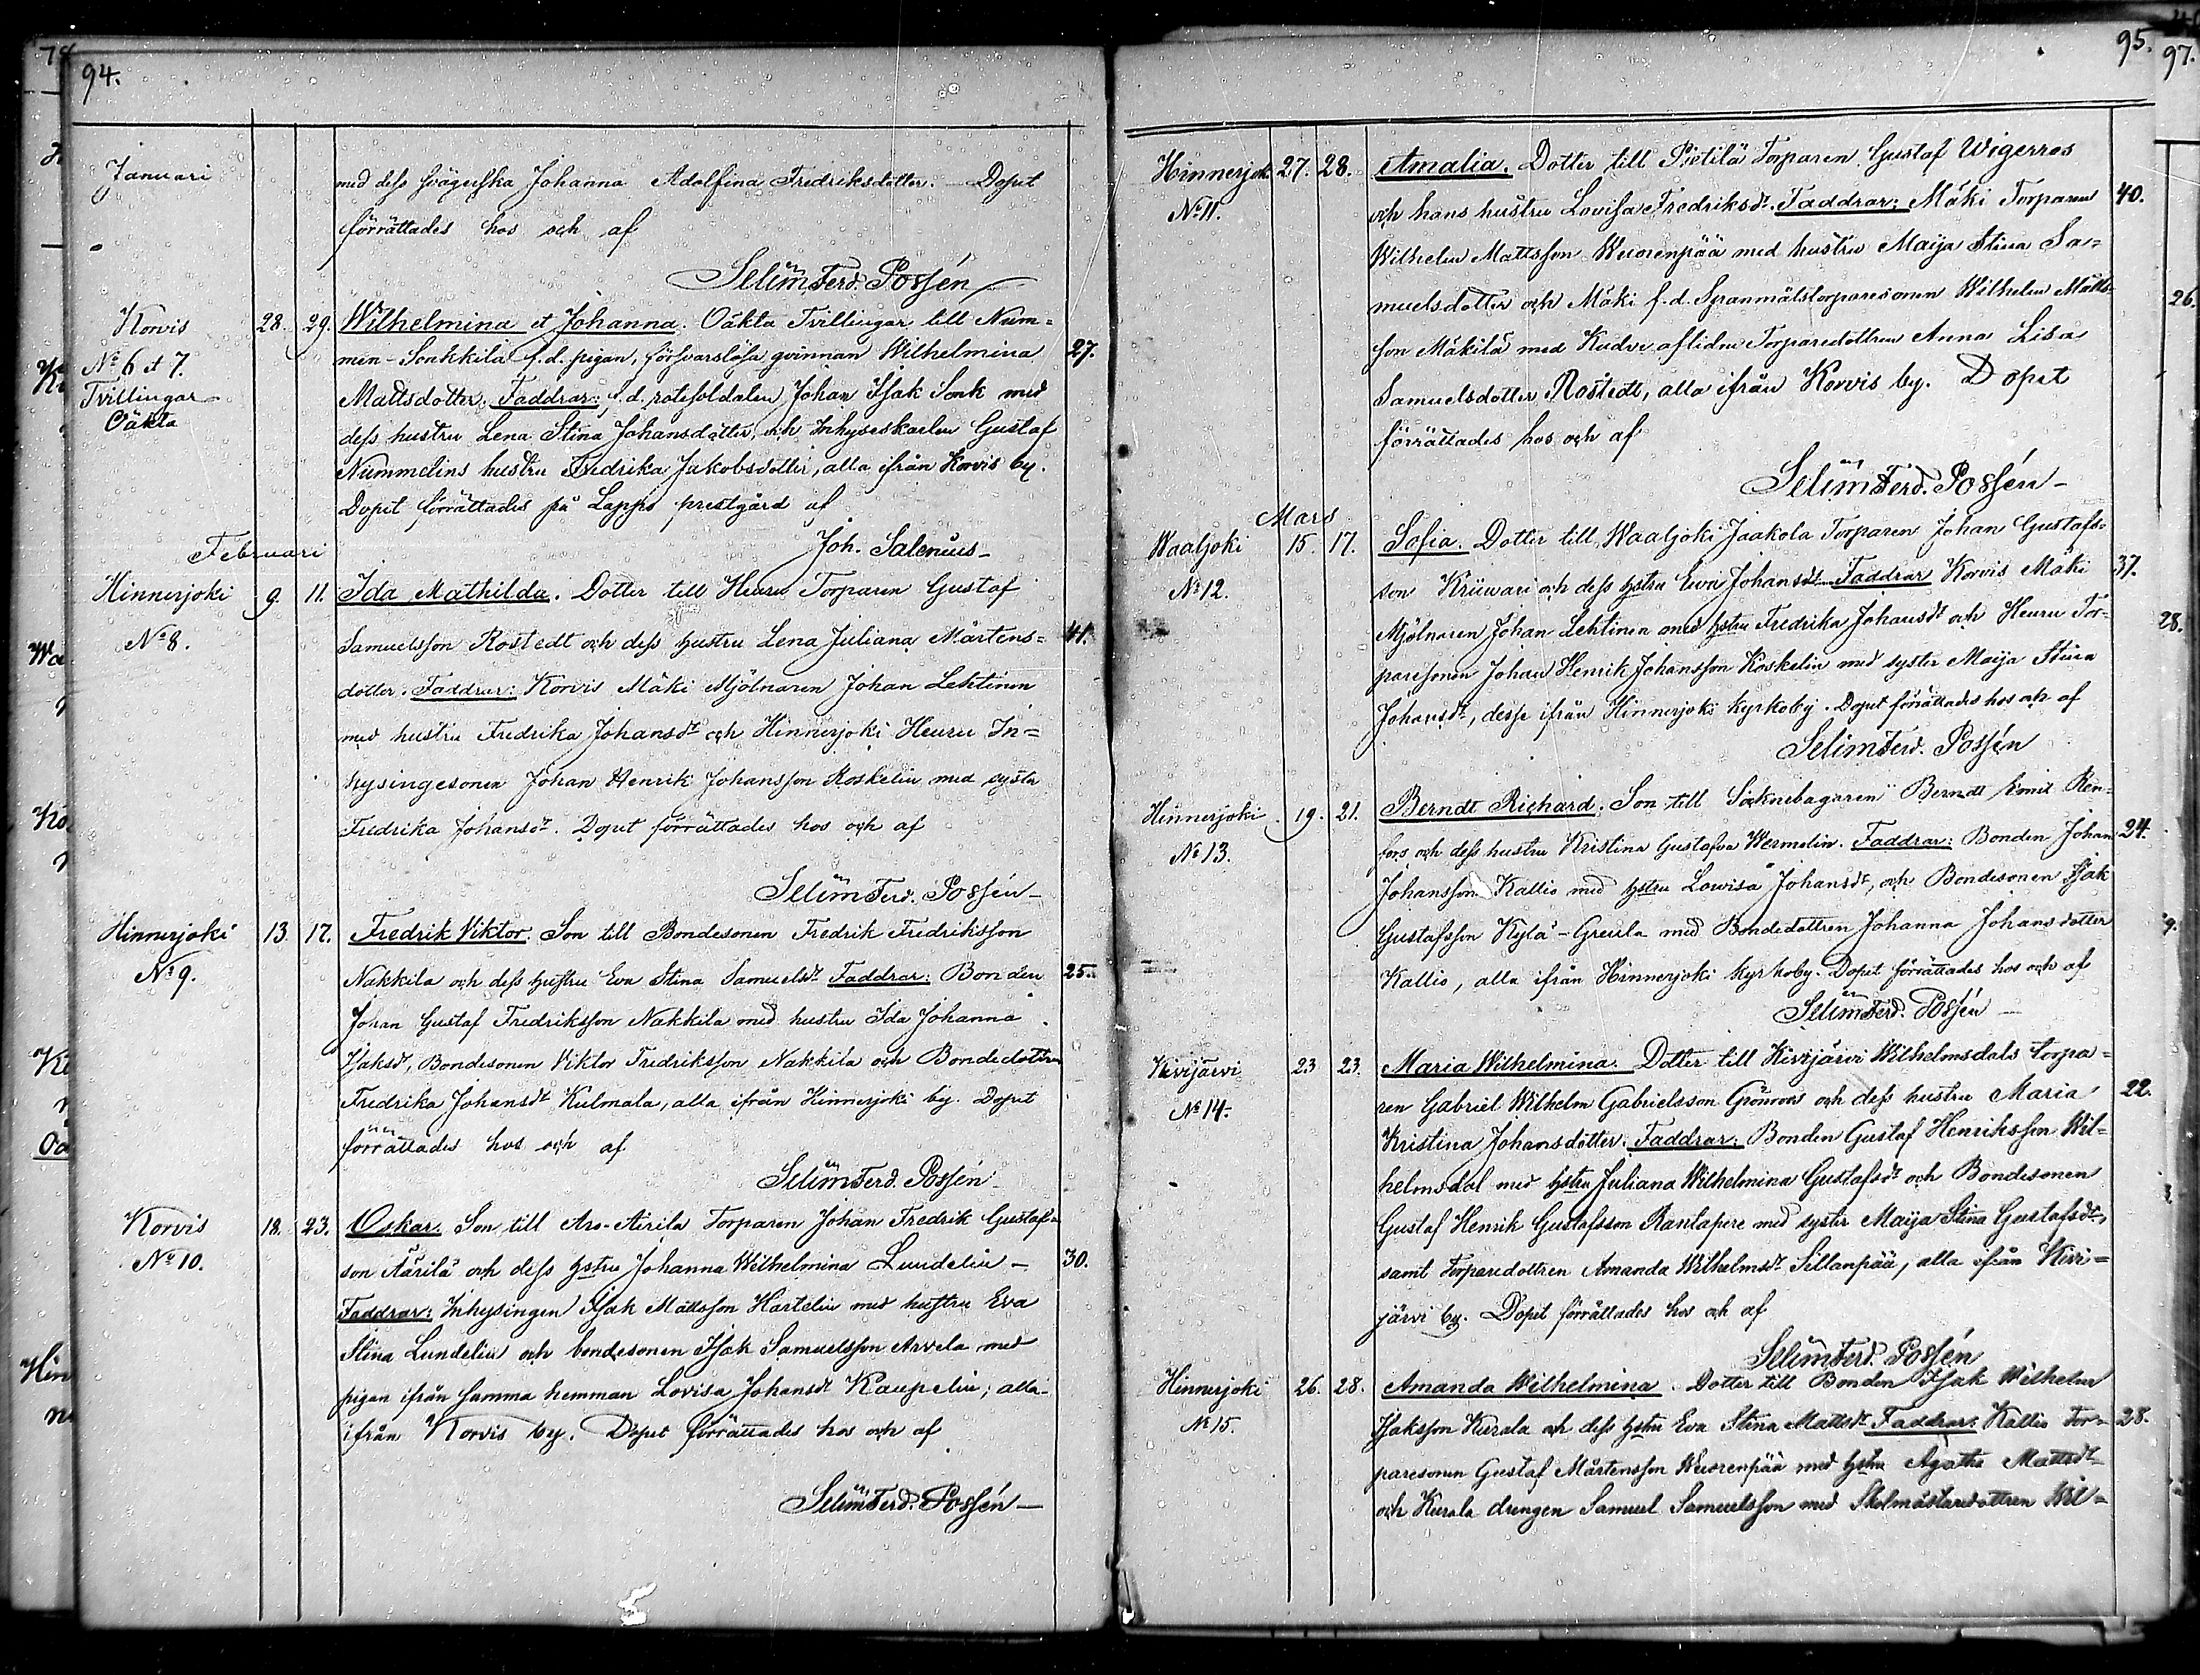 94.
Januari
med dess svägerska Johanna Adolfina Fredriksdotter. Dopet
förrättades hos och af
Selim Ferd. Possén
Korvis 28. 29. Wilhelmina et Johanna. Oäkta Tvillingar till Num=
No 6 et 7. min-Sonkkila f.d. pigan, försvarslösa qvinnan Wilhelmina 27.
Tvillingar Mattsdotter. Faddrar: f.d. rotesoldaten Johan Isak Sonk med
Oäkta dess hustru Lena Stina Johansdotter, och Inhyseskarlen Gustaf
Nummelins hustru Fredrika Jakobsdotter, alla ifrån Korvis by.
Dopet förrättades på Lappo prestgård af
Februari Joh. Salenius
Hinnerjoki 9. 11. Ida Mathilda. Dotter till Heuru Torparen Gustaf
No 8. Samuelsson Rostedt och dess hustru Lena Juliana Mårtens= 41.
dotter. Faddrar: Korvis Mäki Mjölnaren Johan Lehtinen
med hustru Fredrika Johansdr och Hinnerjoki Heuru In=
hysingesonen Johan Henrik Johansson Koskelin med syster
Fredrika Johansdr. Dopet förrättades hos och af
Selim Ferd. Possén
Hinnerjoki 13 17. Fredrik Viktor. Son till Bondesonen Fredrik Fredriksson
No 9. Nakkila och dess hustru Eva Stina Samuelsdr Faddrar: Bonden 25.
Johan Gustaf Fredriksson Nakkila med hustru Ida Johanna
Isaksdr, Bondesonen Viktor Fredriksson Nakkila och Bondedottren
Fredrika Johansdr Kulmala, alla ifrån Hinnerjoki by. Dopet
förrättades hos och af
Selim Ferd. Possén
Korvis 18. 23. Oskar. Son till Aro-Äirilä Torparen Johan Fredrik Gustafs=
No 10. son Äärilä och dess hstru Johanna Wilhelmina Lundelin 30.
Faddrar: Inhysingen Isak Mattsson Hartelin med hustru Eva
Stina Lundelin och bondesonen Isak Samuelsson Arvela med
pigan ifrån samma hemman Lovisa Johansdr Kaupelin; alla
ifrån Korvis by. Dopet förrättades hos och af
Selim Ferd. Possén
95.
Hinnerjoki 27. 28. Amalia. Dotter till Pietilä Torparen Gustaf Wigerros
No 11. och hans hustru Lovisa Fredriksdr. Faddrar: Mäki Torparen 40.
Wilhelm Mattsson Wuorenpää med hustru Maija Stina Sa=
muelsdotter och Mäki f.d. Spanmålstorparesonen Wilhelm Matts=
son Mäkilä med aflidne Torparedottren Anna Lisa
Samuelsdotter Rostedt, alla ifrån Korvis by. Dopet
förrättades hos och af
Selim Ferd. Possén
Mars
Waaljoki 15. 17. Sofia. Dotter till Waaljoki Jaakola Torparen Johan Gustafs=
No 12. son Kriiwari och dess hstru Ewa Johansdr Faddrar Korvis Mäki 37.
Mjölnaren Johan Lehtinen med hstru Fredrika Johansdr och Heuru Tor=
paresonen Johan Henrik Johansson Koskelin med syster Maija Stina
Johansdr, desse ifrån Hinnerjoki kyrkoby. Dopet förrättades hos och af
Selim Ferd. Possén
Hinnerjoki 19. 21. Berndt Richard. Son till Socknebagaren Berndt Emil Ren=
No 13. fors och dess hustru Kristina Gustafva Wermelin. Faddrar: Bonden Johan 24.
Johansson Kallio med hstru Lowisa Johansdr, och Bondesonen Isak
Gustafsson Kylä-Greula med Bondedottren Johanna Johansdotter
Kallio, alla ifrån Hinnerjoki kyrkoby. Dopet förrättades hos och af
Selim Ferd. Possén
Kivijärvi 23 23. Maria Wilhelmina. Dotter till Kivijärvi Wilhelmsdals torpa=
No 14. ren Gabriel Wilhelm Gabrielsson Grönroos och dess hustru Maria 22.
Kristina Johansdotter. Faddrar: Bonden Gustaf Henriksson Wil=
helmsdal med hstru Juliana Wilhelmina Gustafsdr och Bondesonen
Gustaf Henrik Gustafsson Rantapere med syster Maija Stina Gustafsdr,
samt Torparedottren Amanda Wilhelmsdr Sillanpää, alla ifrån Kivi=
järvi by. Dopet förrättades hos och af
Selim Ferd. Possén
Hinnerjoki 26. 28. Amanda Wilhelmina. Dotter till Bonden Isak Wilhelm
No 15. Isaksson Kurala och dess hstru Eva Stina Mattsdr Faddrar: Kallio Tor= 28.
paresonen Gustaf Mårtensson Wuorenpää med hstru Agatha Mattsdr
och Kurala drengen Samuel Samuelsson med Skolmästaredottren Wil=
97.
26.
28.